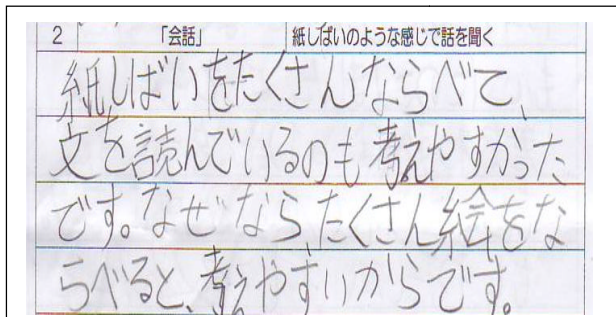 2 「会話」 紙しばいのような感じで話を聞く
紙しばいをたくさんならべて、
文を読んでいるのも考えやすかった
です。なぜなら、たくさん絵をな
らべると、考えやすいからです。